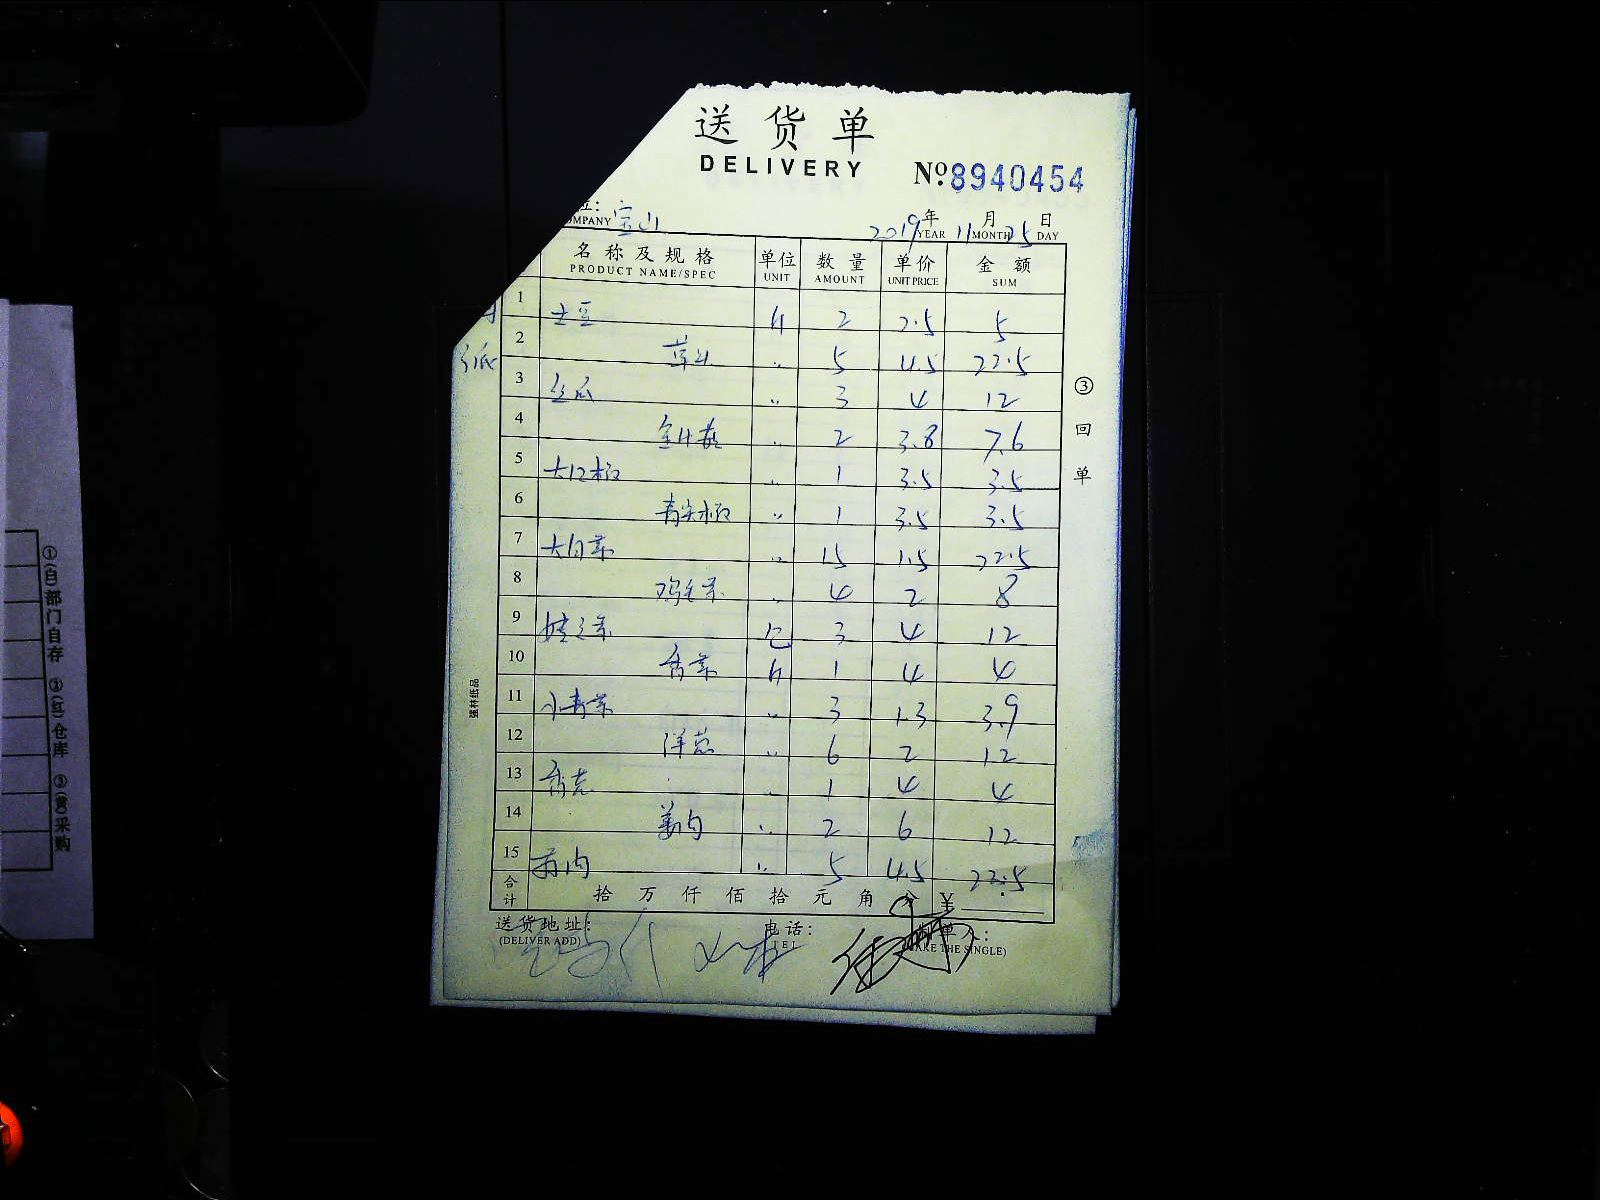 送货单
DELIVERY
№8940454
位: 宝山
2019年 11月 25日
YEAR MONTH DAY
名称及规格 单位 数量 单价 金额
PRODUCT NAME/SPEC UNIT AMOUNT UNIT PRICE SUM
1 土豆 斤 2 2.5 5
2 草头 〃 5 4.5 22.5
3 丝瓜 〃 3 4 12
4 金针菇 〃 2 3.8 7.6
5 大红椒 〃 1 3.5 3.5
6 青尖椒 〃 1 3.5 3.5
7 大白菜 〃 15 1.5 22.5
8 鸡毛菜 〃 4 2 8
9 娃娃菜 包 3 4 12
10 香菜 斤 1 4 4
11 小青菜 〃 3 1.3 3.9
12 洋葱 〃 6 2 12
13 香葱 〃 1 4 4
14 姜肉 〃 2 6 12
15 〃 5 4.5 22.5
合计 拾 万 仟 佰 拾 元 角 分 ¥
送货地址: 电话: 制单人:
(DELIVER ADD) TEL (MAKE THE SINGLE)
③回单
强林纸品
①(白)部门自存 ②(红)仓库 ③(黄)采购